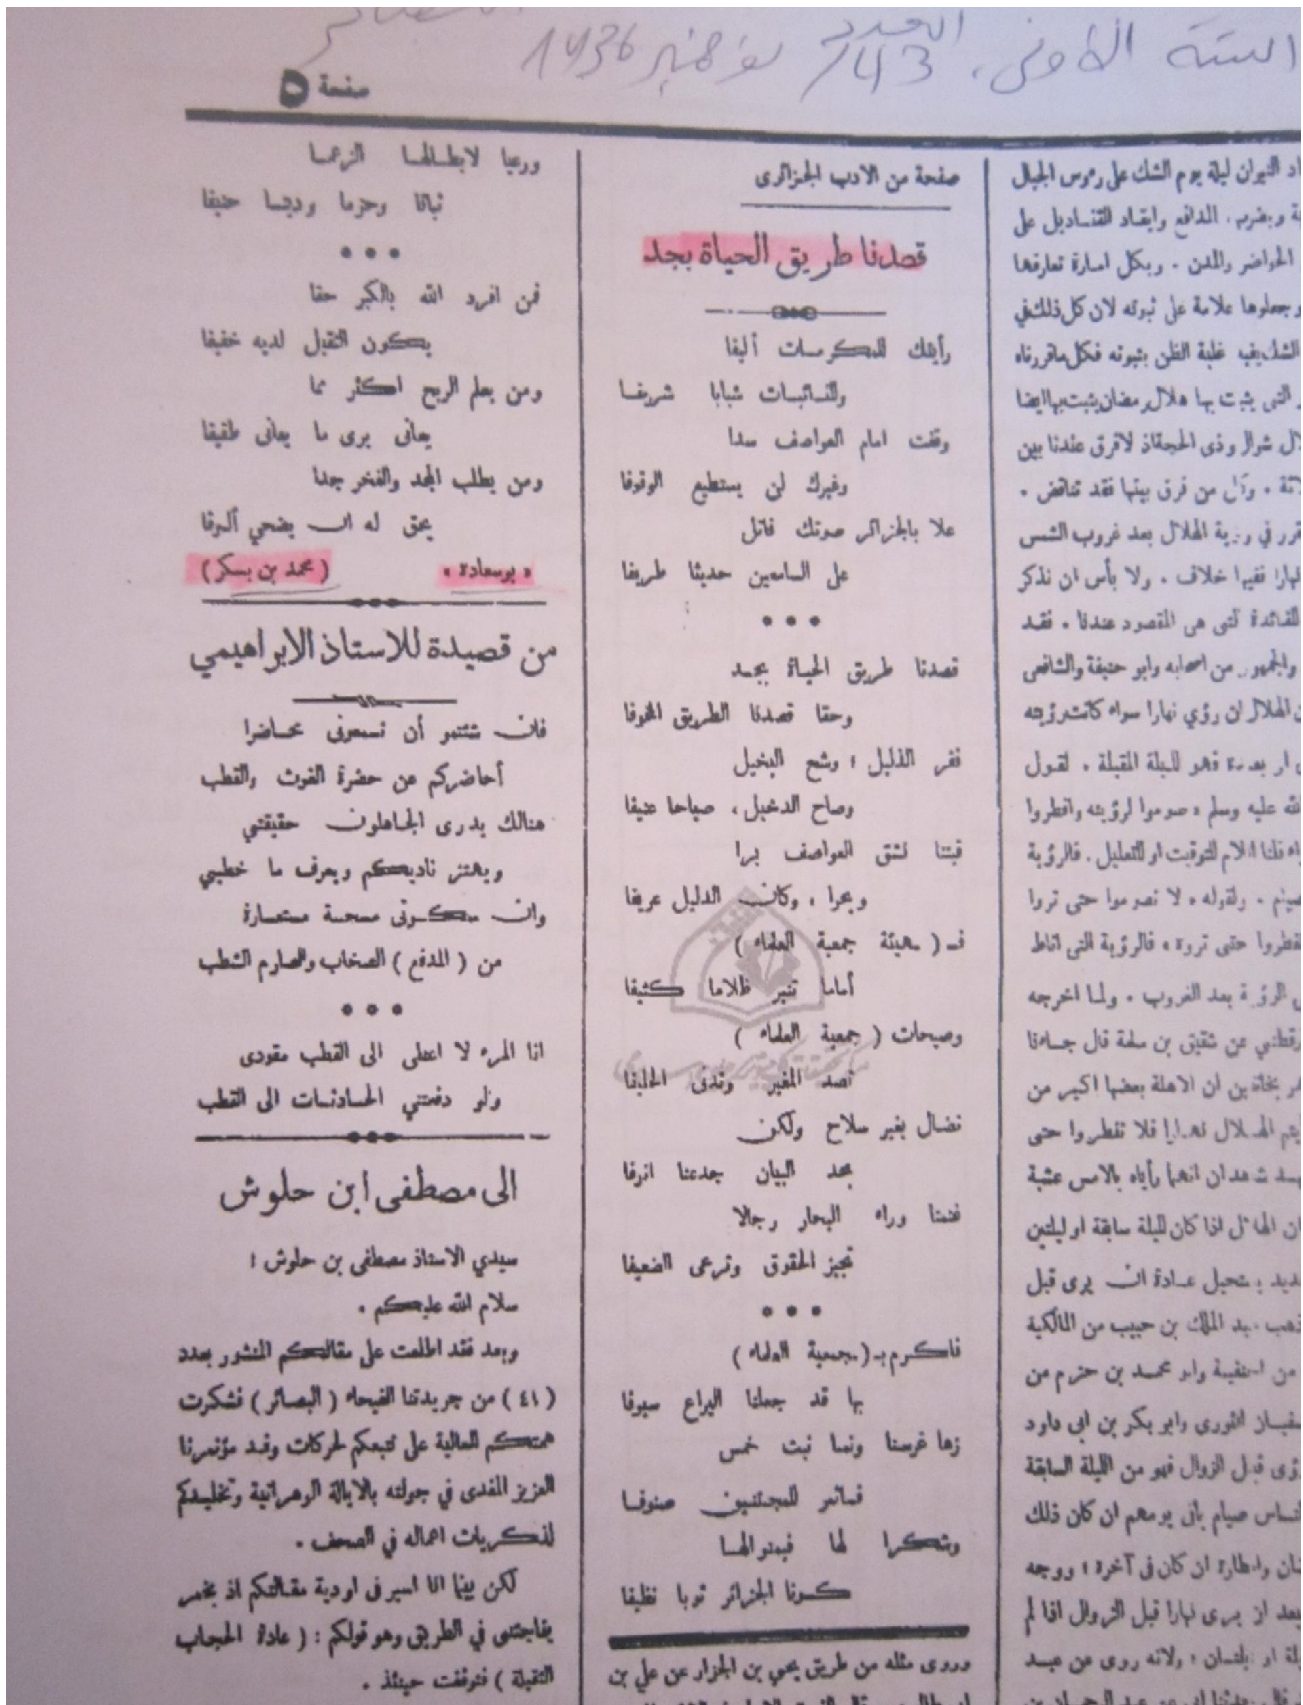 السنة الأولى، العدد 43/ نوفمبر 1936
صفحة ٥
اد النيران ليلة يوم الشك على رءوس الجبال
الحواضر والمدن . وبكل امارة تعارفها
وجعلوها علامة على ثبوته لان كل ذلك في
الشك يفيد غلبة الظن بثبوته فكل ما قررناه
التي يثبت بها هلال رمضان يثبت بها ايضا
لال شوال وذى الحجة اذ لا فرق عندنا بين
من فرق بينها فقد تناقض .
قرر في رؤية الهلال بعد غروب الشمس
نهارا ففيها خلاف . ولا بأس ان نذكر
للفائدة التى هى المقصود عندنا . فقد
والجمهور من اصحابه وابو حنيفة والشافعى
ن الهلال ان رؤي نهارا سواء كانت رؤيته
او بعده فهو لليلة المقبلة . لقول
الله عليه وسلم « صوموا لرؤيته وافطروا
سواء قلنا اللام للتوقيت او للتعليل . فالرؤية
ولقوله « لا تصوموا حتى تروا
تفطروا حتى تروه » فالرؤية التى اناط
الرؤية بعد الغروب . ولما اخرجه
رقطني عن شقيق بن سلمة قال جاءنا
بخانقين ان الاهلة بعضها اكبر من
يتم الهلال نهارا فلا تفطروا حتى
شاهدان انهما رأياه بالامس عشية
ان الهلال اذا كان لليلة سابقة او ليلتين
يستحيل عادة ان يرى قبل
عبد الملك بن حبيب من المالكية
من الحنفية وابو محمد بن حزم من
سفيان الثورى وابو بكر بن ابى داود
رؤى قبل الزوال فهو من الليلة السابقة
الناس صيام باقى يومهم ان كان ذلك
وافطاره ان كان فى آخره ؛ ووجه
يرى نهارا قبل الزوال اذا لم
ولانه روى عن عبد
صفحة من الادب الجزائرى
قصدنا طريق الحياة بجد
رأيتك للمكرمات أليفا
وللنائبات شبابا شريفا
وقفت امام العواصف سدا
وغيرك لن يستطيع الوقوفا
علا بالجزائر صوتك فاتل
على السامعين حديثا طريفا
• • •
قصدنا طريق الحياة بجد
وحقا قصدنا الطريق المخوفا
ففر الذليل ؛ وشح البخيل
وصاح الدخيل ، صياحا عنيفا
فبتنا نشق العواصف برا
وبحرا ، وكان الدليل عريفا
فـ ( هيئة جمعية العلماء )
أماما تنير ظلاما كثيفا
وصيحات ( جمعية العلماء )
تصد المغير وتدنى الحليفا
نضال بغير سلاح ولكن
بحد البيان جدعنا انوفا
فقمنا وراء البحار رجالا
نجيز الحقوق ونرعى الضعيفا
• • •
فاكرم بـ ( جمعية العلماء )
بها قد جعلنا اليراع سيوفا
زها غرسنا ونما نبت خمس
فأثمر للمجتنين صنوفا
وشكرا لها فبمنوالها
كسونا الجزائر ثوبا نظيفا
وروى مثله من طريق يحيى بن الجزار عن علي بن
ورعيا لابطالها الزعما
ثباتا وحزما ودينا حنيفا
• • •
فمن افرد الله بالكبر حقا
يكون الثقيل لديه خفيفا
ومن يعلم الربح اكثر مما
يعانى يرى ما يعانى طفيفا
ومن يطلب المجد والفخر جدا
يحق له ان يضحي ألوفا
« بوسعادة » ( محمد بن بسكر )
من قصيدة للاستاذ الابراهيمي
فان شئتمو أن تسمعونى محاضرا
أحاضركم عن حضرة الغوث والقطب
هنالك يدرى الجاهلون حقيقتي
ويهتز ناديكم ويعرف ما خطبي
وان سكوتى مسحة مستعارة
من ( المدفع ) الصخاب والصارم الشطب
• • •
انا المرء لا اعطى الى القطب مقودى
ولو دفعتني الحادثات الى القطب
الى مصطفى ابن حلوش
سيدي الاستاذ مصطفى بن حلوش ؛
سلام الله عليكم .
وبعد فقد اطلعت على مقالكم المنشور بعدد
( ٤١ ) من جريدتنا الفيحاء ( البصائر ) فشكرت
همتكم العالية على تتبعكم لحركات وفد مؤتمرنا
العزيز المفدى في جولته بالايالة الوهرانية وتخليدكم
لذكريات اعماله في الصحف .
لكن بينما انا اسير فى اودية مقالتكم اذ بخبر
يفاجئنى في الطريق وهو قولكم : ( عادة الحجاب
الثقيلة ) فتوقفت حينئذ .